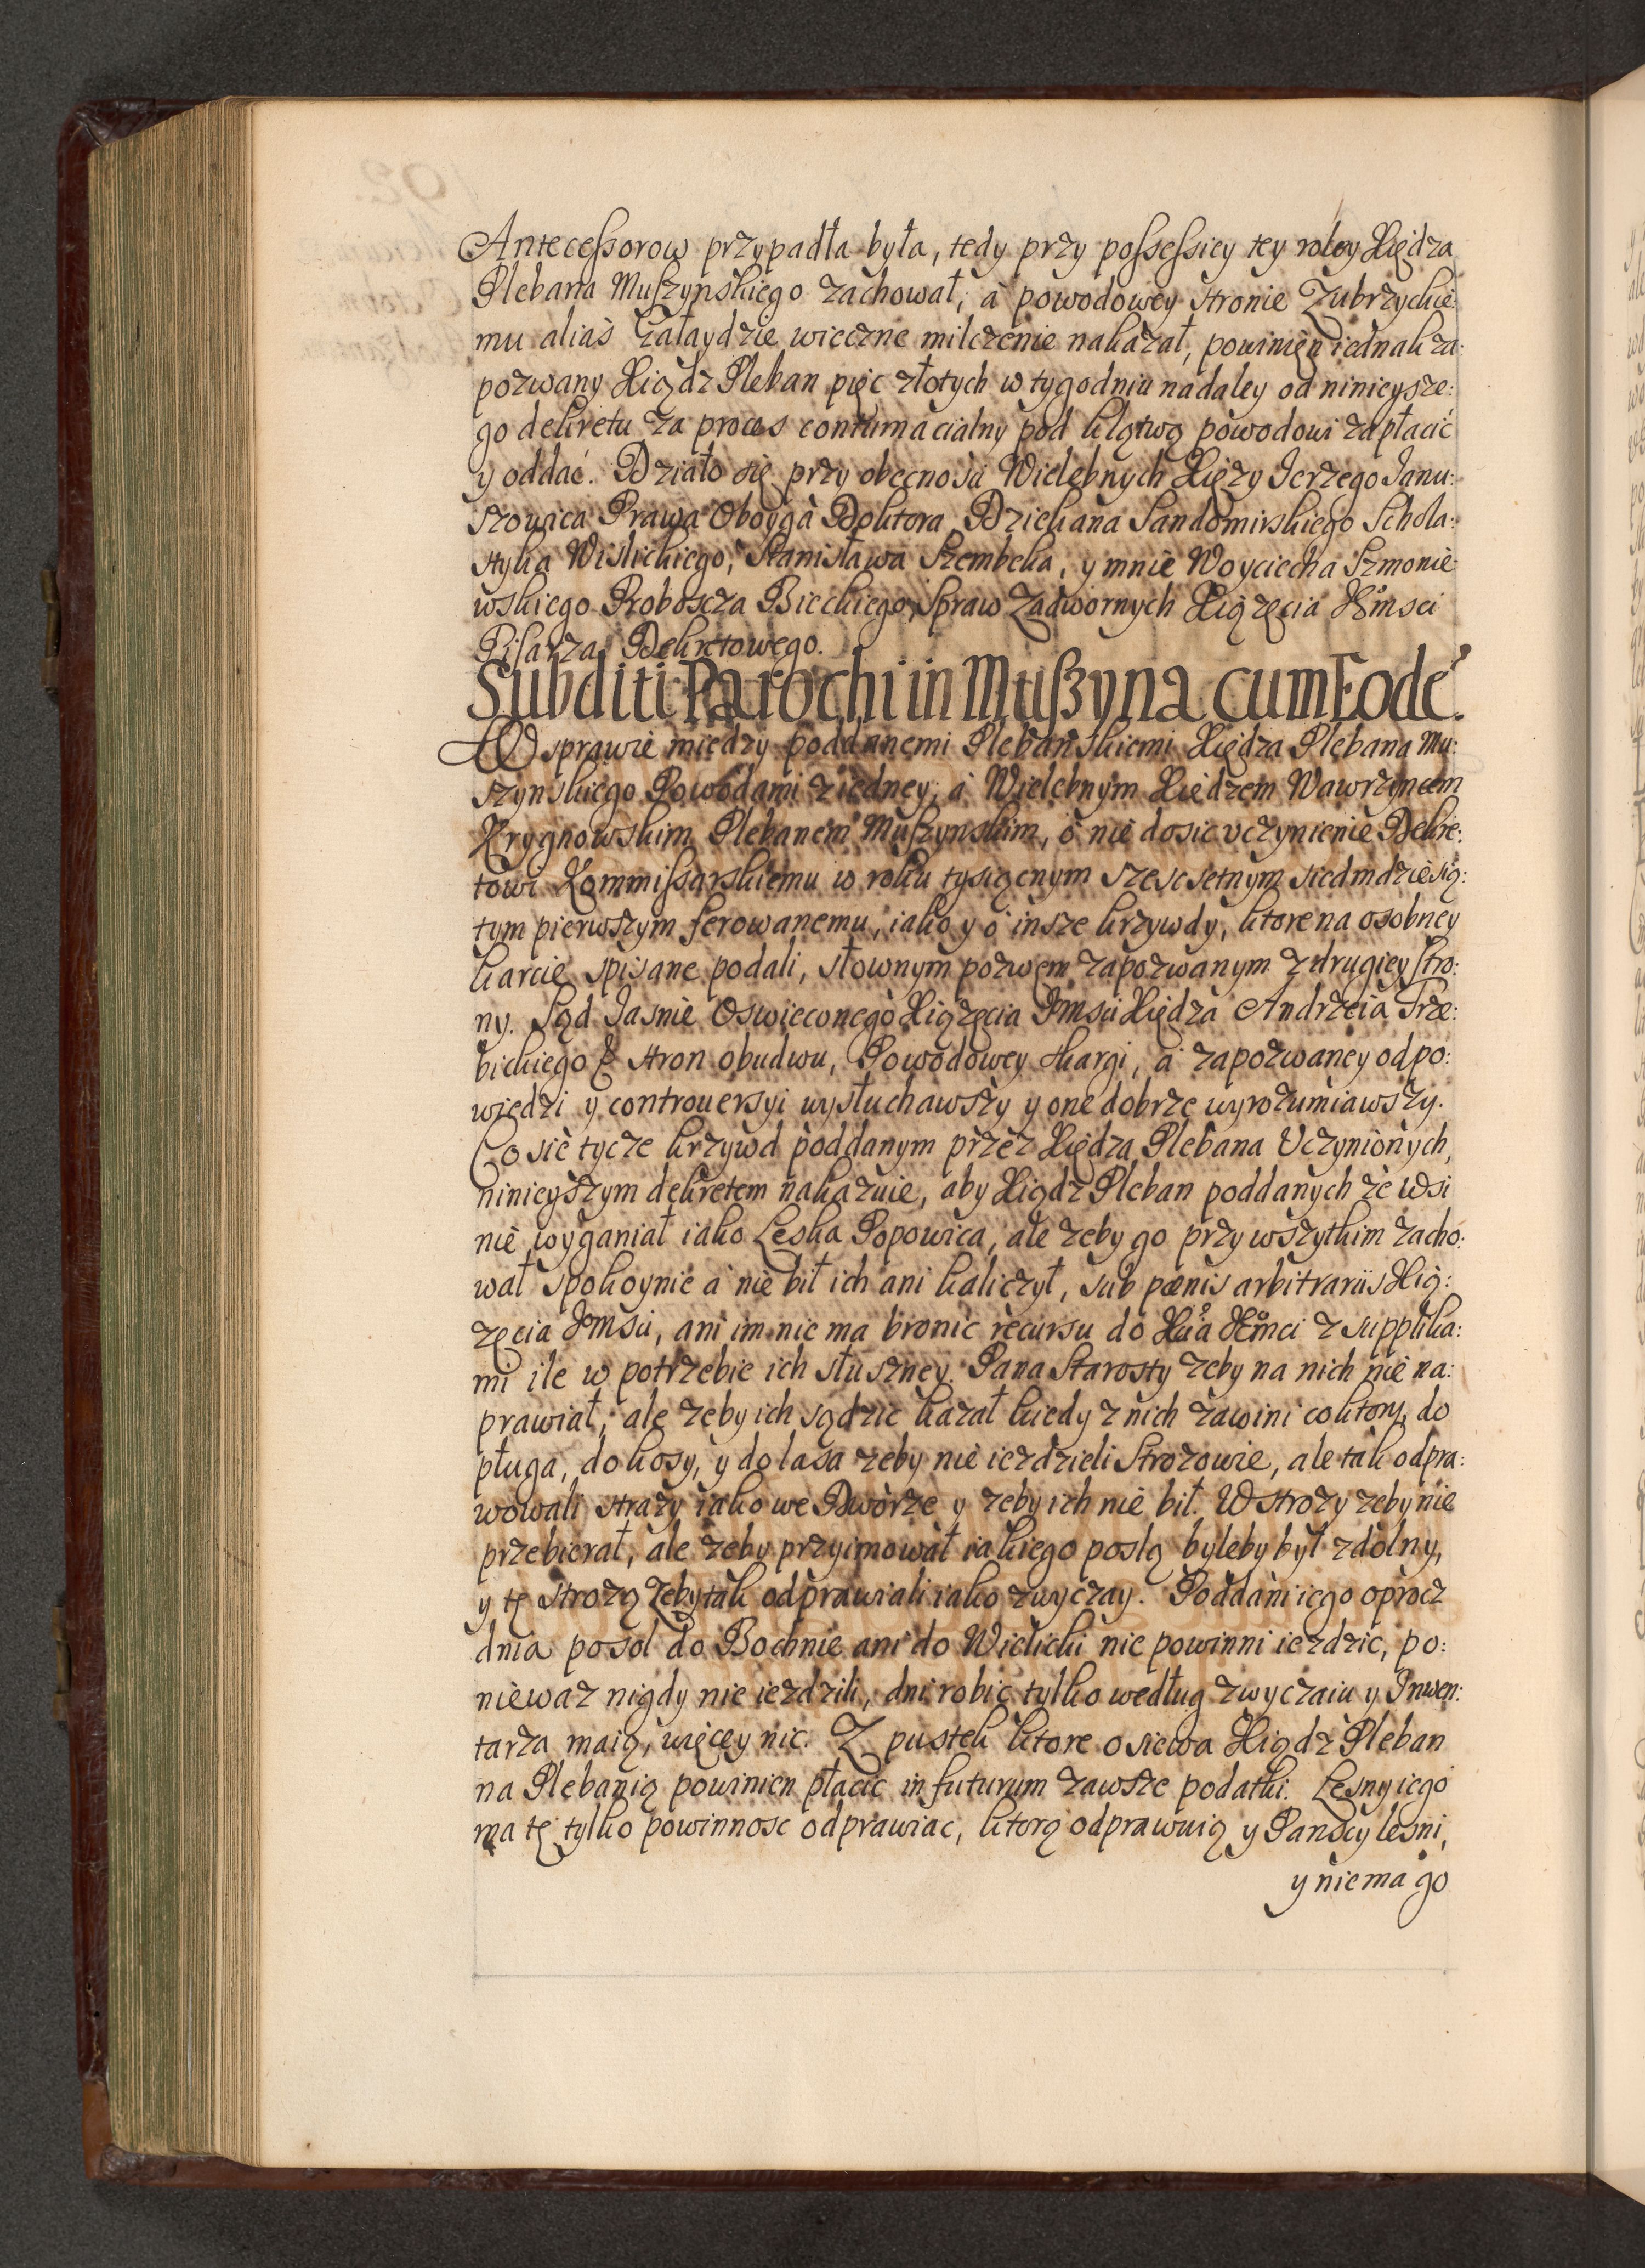 Antecessorow przypadła była, tedy przy possessiey tey roley Xiędza
Plebana Muszynskiego zachował, a powodowey stronie Zubrzyckie:
mu alias Gałaydzie wieczne milczenie nakazał, powinien iednak za:
pozwany Xiądz Pleban pięc złotych w tygodniu nadaley od ninieysze:
go dekretu za proces contumacialny pod klątwą powodowi zapłacić
y oddać. Działo się przy obecnosci Wielebnych Xięży Jerzego Janu:
szowica Prawa Oboyga Doktora Dziekana Sandomirskiego Schola:
styka Wislickiego, Stanisława Szembeka, y mnie Woyciecha Szmonie:
wskiego Proboszcza Bieckiego, Spraw Zadwornych Xiążęcia JEmsci
Pisarza Dekretowego.
Subditi Parochi in Muszyna cum Eodē.
W sprawie miedzy poddanemi Plebanskiemi Xiędza Plebana Mu:
szynskiego Powodami z iedney, a Wielebnym Xiedzem Wawrzyncem
Krygnowskim Plebanem Muszynskim, o nie dosic vczynienie Dekre:
towi Kommissarskiemu w roku tysiącnym szescsetnym siedmdziesią:
tym pierwszym ferowanemu, iako y o insze krzywdy, ktore na osobney
karcie spisane podali, słownym pozwem zapozwanym z drugiey stro:
ny. Sąd Jasnie Oswieconego Xiążęcia Jmsci Xiędza Andrzeia Trze:
bickiego & stron obudwu, Powodowey skargi, a zapozwaney odpo:
wiedzi y controuersyi wysłuchawszy y one dobrze wyrozumiawszy.
Co sie tycze krzywd poddanym przez Xiędza Plebana Vczynionych,
ninieyszym dekretem nakazuie, aby Xiądz Pleban poddanych ze wsi
nie wyganiał iako Leska Popowica, ale zeby go przy wszytkim zacho:
wał spokoynie a nie bił ich ani kaliczył, sub pœnis arbitrariis Xią:
zęcia Jemsci, ani im nie ma bronic recursu do Xcia JEmci z supplika:
mi ile w potrzebie ich słuszney. Pana Starosty zeby na nich nie na:
prawiał, ale zeby ich sądzic kazał kiedy z nich zawini co ktory, do
pługa, do kosy, y do lasa zeby nie iezdzieli Strozowie, ale tak odpra:
wowali strazy iako we Dworze y zeby ich nie bił. W strozy zeby nie
przebierał, ale zeby przyimował iakiego poslą byleby był zdolny,
y tę strozą zeby tak odprawiali iako zwyczay. Poddani iego oprocz
dnia posol do Bochnie ani do Wielicki nie powinni iezdzic, po:
niewaz nigdy nie iezdzili, dni robic tylko według zwyczaiu y Inwen:
tarza maią, więcey nic. Z pustek ktore osiewa Xiądz Pleban
na Plebanią powinien płacic in futurum zawsze podatki. Lesny iego
ma tę tylko powinnosc odprawiac, ktorą odprawuią y Panscy lesni,
y nie ma go